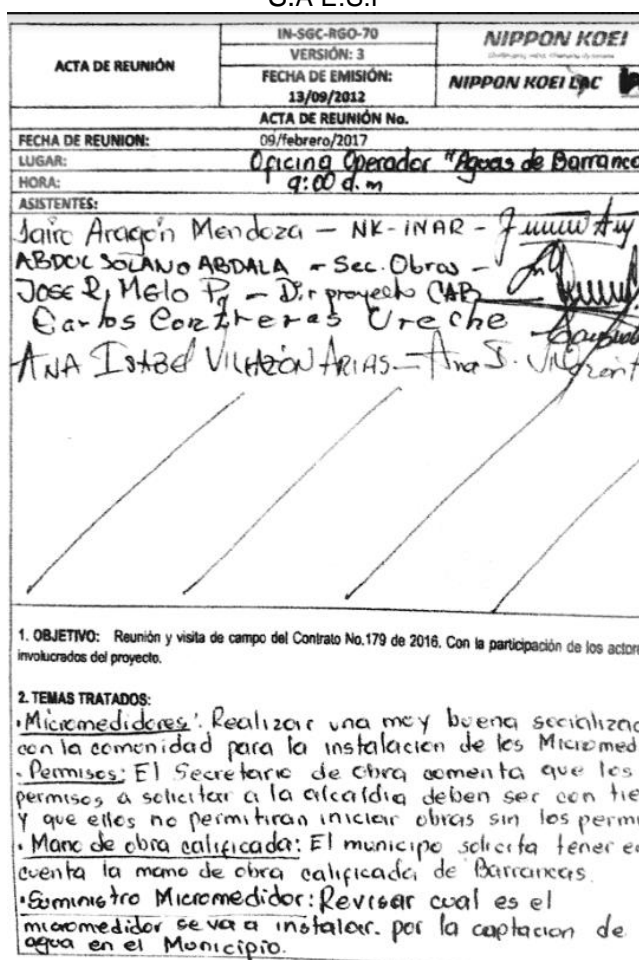 S.A E.S.P
IN-SGC-RGO-70
NIPPON KOEI
VERSIÓN: 3
ACTA DE REUNIÓN
FECHA DE EMISIÓN:
NIPPON KOEI LAC
13/09/2012
ACTA DE REUNIÓN No.
FECHA DE REUNION: 09/febrero/2017
LUGAR: Oficina Operador "Aguas de Barranca
HORA: 9:00 a.m
ASISTENTES:
Jairo Aragón Mendoza - NK-INAR -
ABDUL SOLANO ABDALA - Sec. Obras -
JOSE R, Melo P. - Dir proyecto CAB
Carlos Contreras Ureche
ANA ISABEL VILLAZÓN ARIAS - Ana I.
1. OBJETIVO: Reunión y visita de campo del Contrato No.179 de 2016. Con la participación de los actore
involucrados del proyecto.
2. TEMAS TRATADOS:
• Micromedidores: Realizar una muy buena socializac
con la comunidad para la instalacion de los Micromed
• Permisos: El Secretario de obra comenta que los
permisos a solicitar a la alcaldia deben ser con tie
y que ellos no permitiran iniciar obras sin los permi
• Mano de obra calificada: El municipo solicita tener e
cuenta la mano de obra calificada de Barrancas.
• Suministro Micromedidor: Revisar cual es el
micromedidor se va a instalar. por la captacion de
agua en el Municipio.